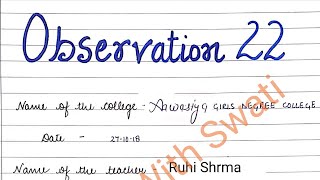 Observation 22
Name of the college - Aawasiya GIRLS DEGREE COLLEGE
Date - 27-10-18
Name of the teacher - Ruhi Shrma
With Swati